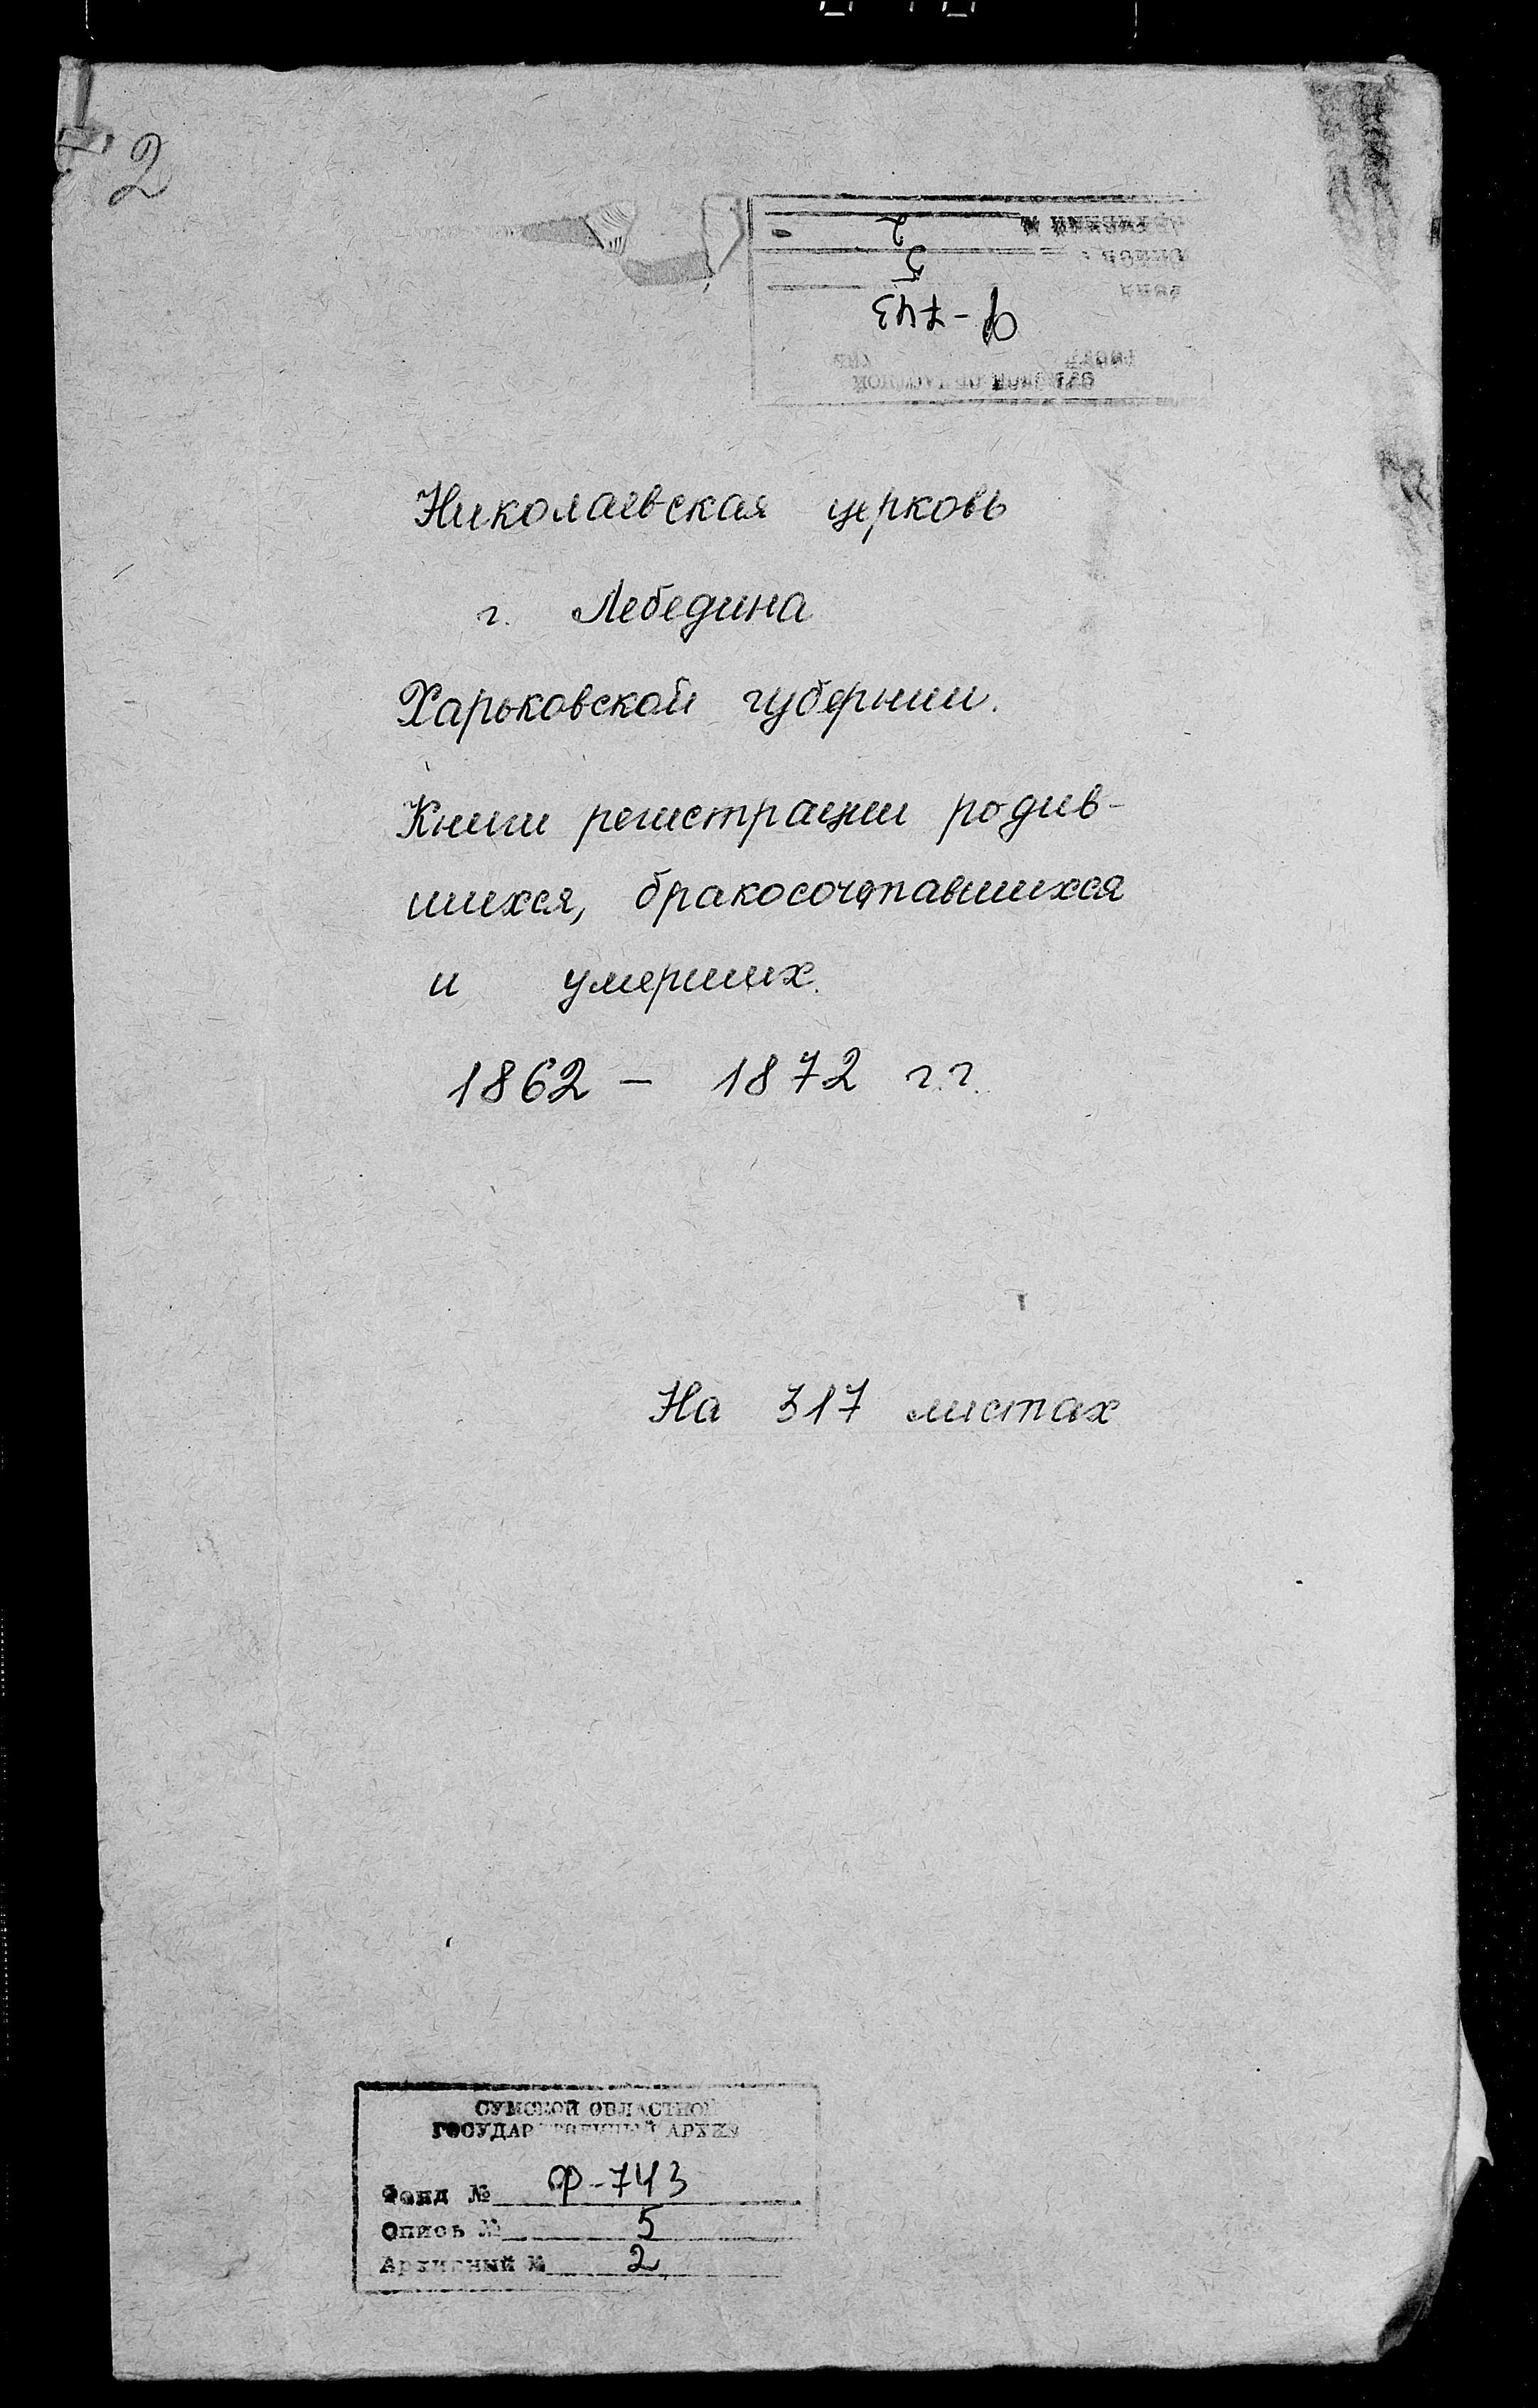 2
Ф-743
5
2
Николаевская церковь
г. Лебедина
Харьковской губернии.
Книги регистрации родив-
шихся, бракосочетавшихся
и умерших.
1862 – 1872 г.г.
На 317 листах
СУМСКОЙ ОБЛАСТНОЙ
ГОСУДАРСТВЕННЫЙ АРХИВ
Фонд № Ф-743
Опись № 5
Архивный № 2